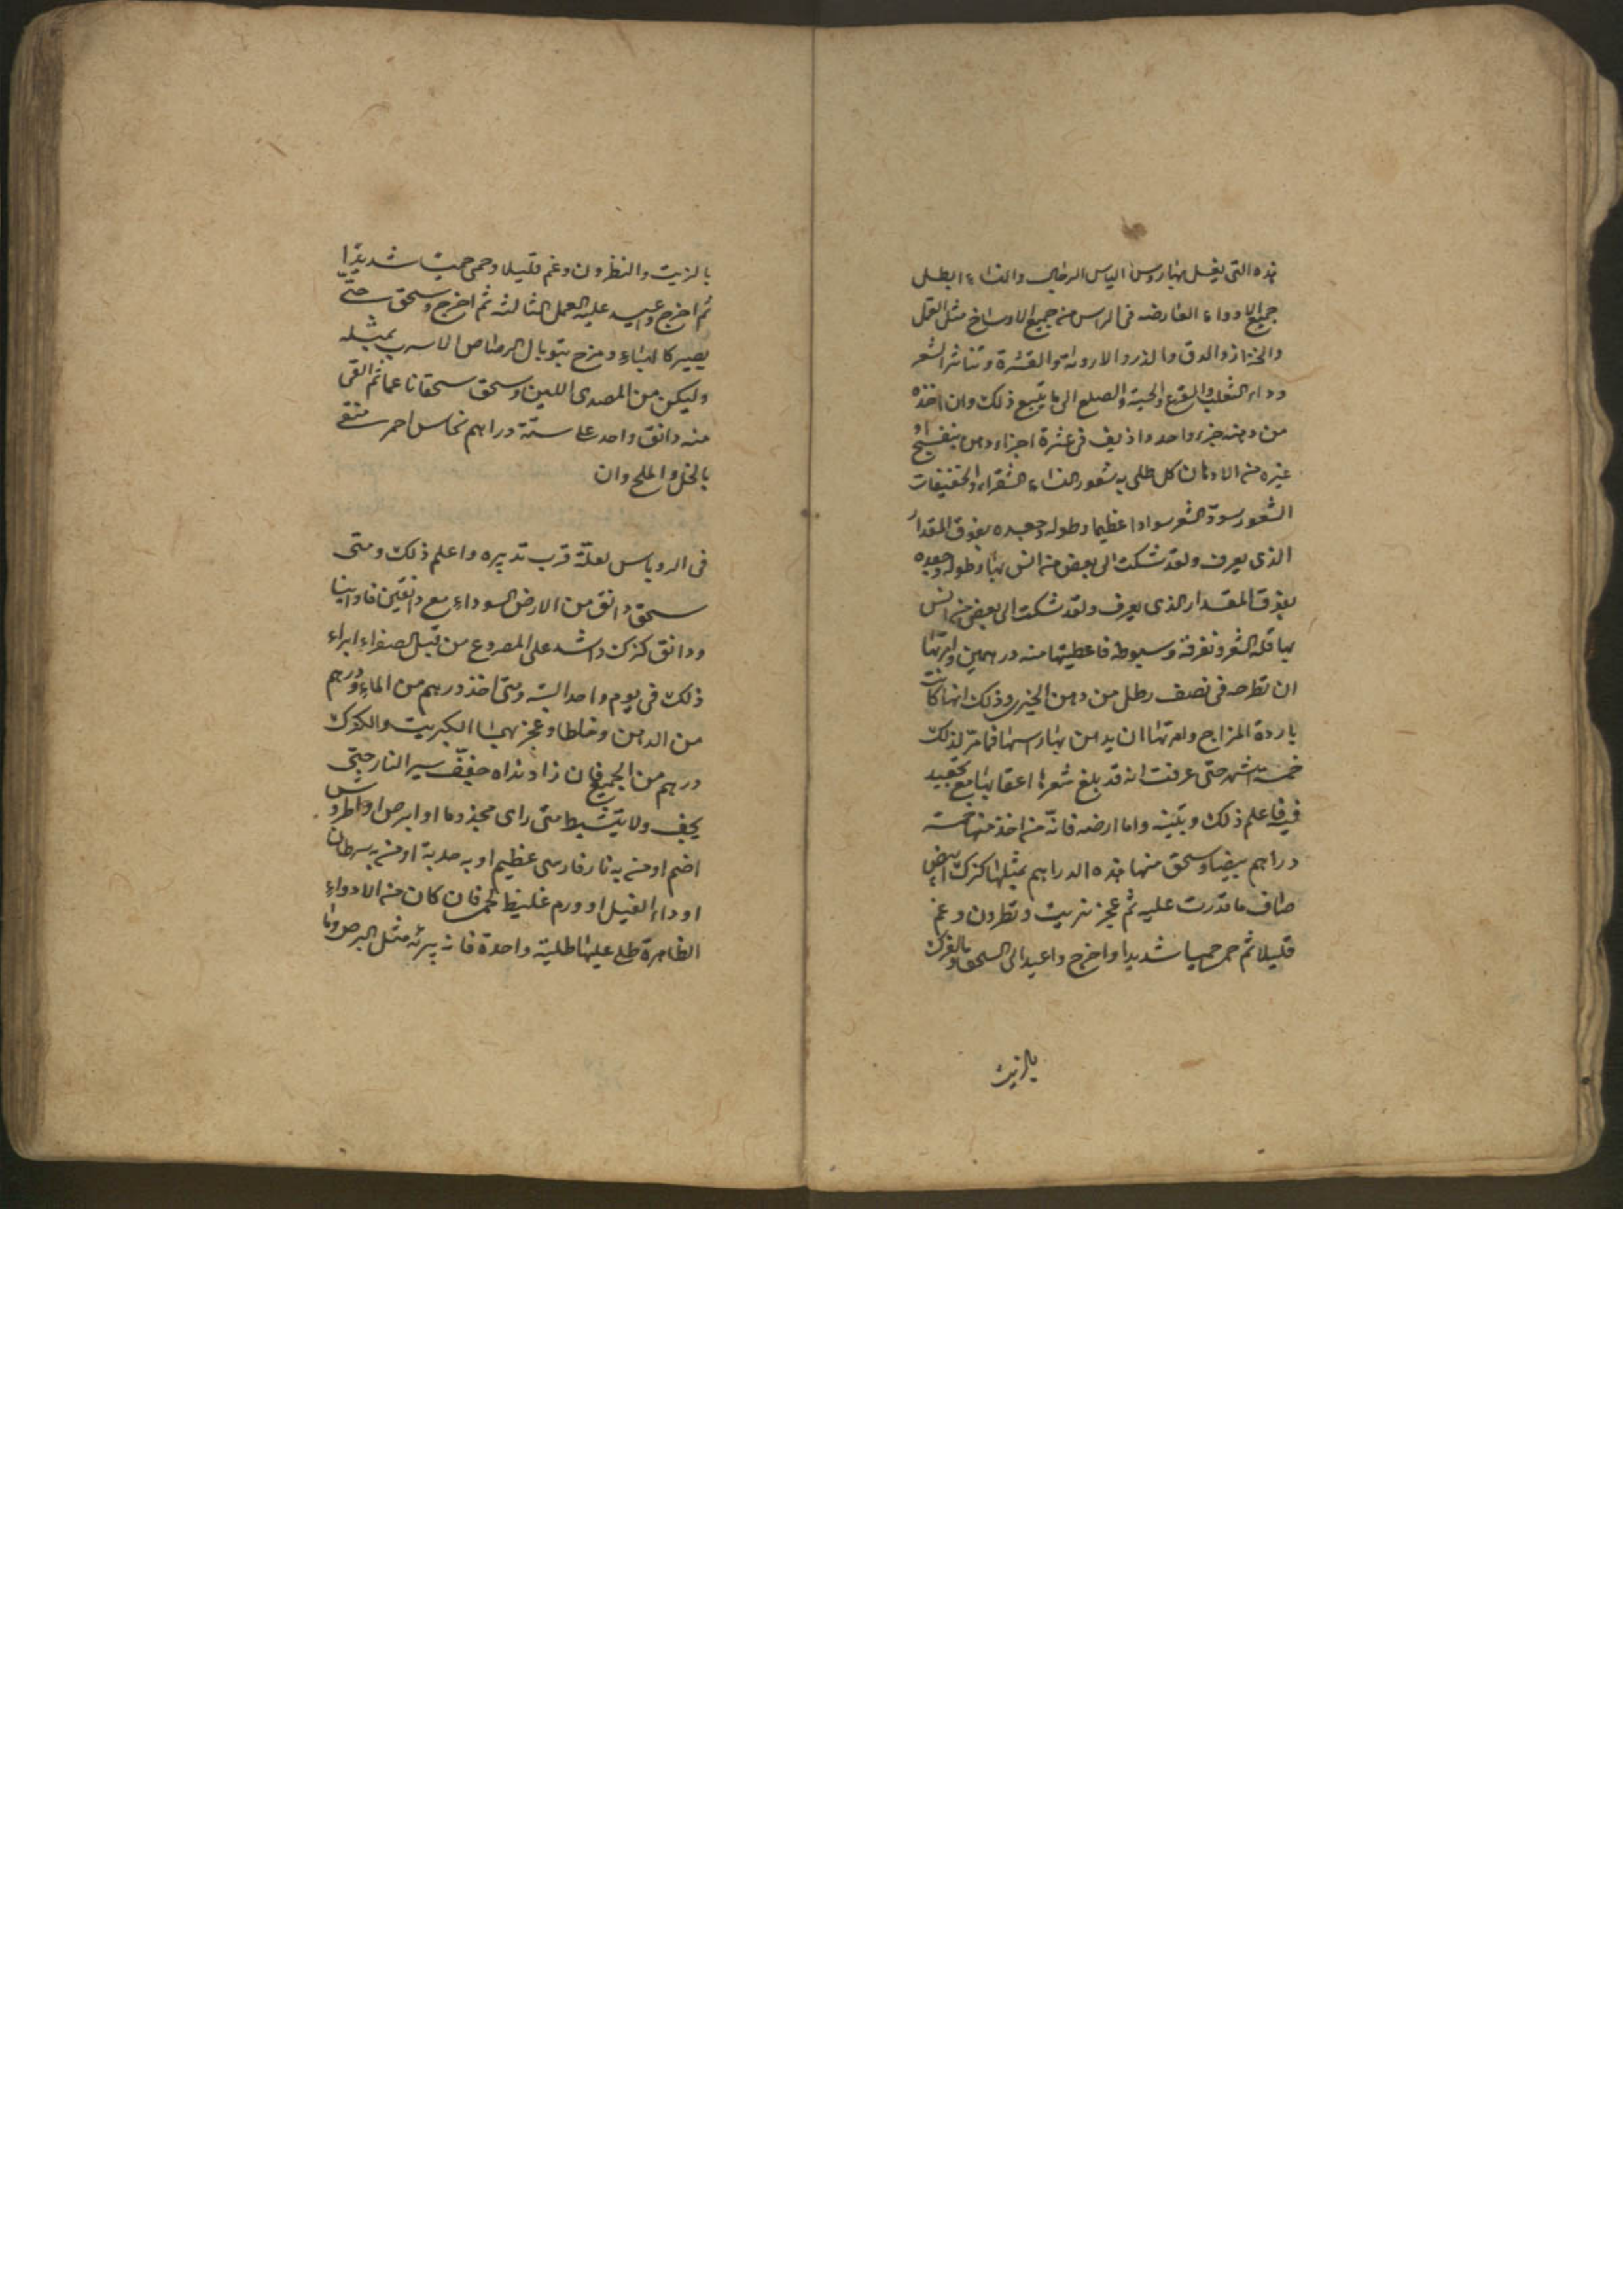 هذه التى يغسل بها روس الناس الرجال والنساء ابطل
جميع الادواء العارضه فى الراس من جميع الاوساخ مثل القمل
والحزاز والدق والذرور والقشرة وتناثر الشعر
وداء الثعلب والقرع والحية والصلع الى ما يتبع ذلك وان اخذه
من دهنه جزء واحد واذيف فى عشرة اجزاء دهن بنفسج او
غيره من الادهان كل طلى به شعور النساء الشقراء والخفيفات
الشعور سود الشعر سوادا عظيما وطوله وجعده بفوق المقدار
الذى يعرف ولقد شكت الى بعض من انس بها وطوله وجعده
بفوق المقدار الذى يعرف ولقد شكت الى بعض من انس
بها قلة الشعر وتفرقة وسبوطه فاعطيتها منه درهمين وامرتها
ان تطرحه فى نصف رطل من دهن الخيرى وذلك انها كانت
باردة المزاج وامرتها ان يدهن بها راسها فما مر لذلك
خمسة اشهر حتى عرفت انه قد بلغ شعرها اعقابها مع تجعيد
فيه فاعلم ذلك وتبينه واما ارضه فانه من اخذ منها خمسة
دراهم بيضا وسحق منها هذه الدراهم بمثلها كزك ابيض
صاف ما قدرت عليه ثم عجز بزيت ونطرون وغم
قليلا ثم حمى حميا شديدا واخرج واعيد الى السحق والفرك
بالزيت
بالزيت والنطرون وغم قليلا وحمى حميت شديدا
ثم اخرج واعيد عليه العمل الثالثه ثم اخرج وسحق حتى
يصير كالهباء ومزج بتوبال الرصاص الاسرب بمثله
وليكن من المصدى اللين وسحق سحقا ناعما ثم القى
منه دانق واحد على ستة دراهم نحاس احمر منقى
بالخل والملح وان
فى الروباس لعلة قرب تدبيره واعلم ذلك ومتى
سحق دانق من الارض السوداء مع دانقين فاوانيا
ودانق كزك واشد على المصروع من قبل الصفراء ابراء
ذلك فى يوم واحد البتة ومتى اخذ درهم من الماء ودرهم
من الدهن وخلطا وعجز بهما الكبريت والكزك
درهم من الجميع فان زاد نداه جفف بيسير النار حتى
يجف ولا يتشيط متى راى مجذوما او ابرص او اطروش
اضم او من به نار فارسى عظيم او به حدبة او من به سرطان
او داء الفيل او ورم غليظ لحمى فان كان من الادواء
الظاهرة طلى عليها طلية واحدة فانه يبرئه مثل البرص وما